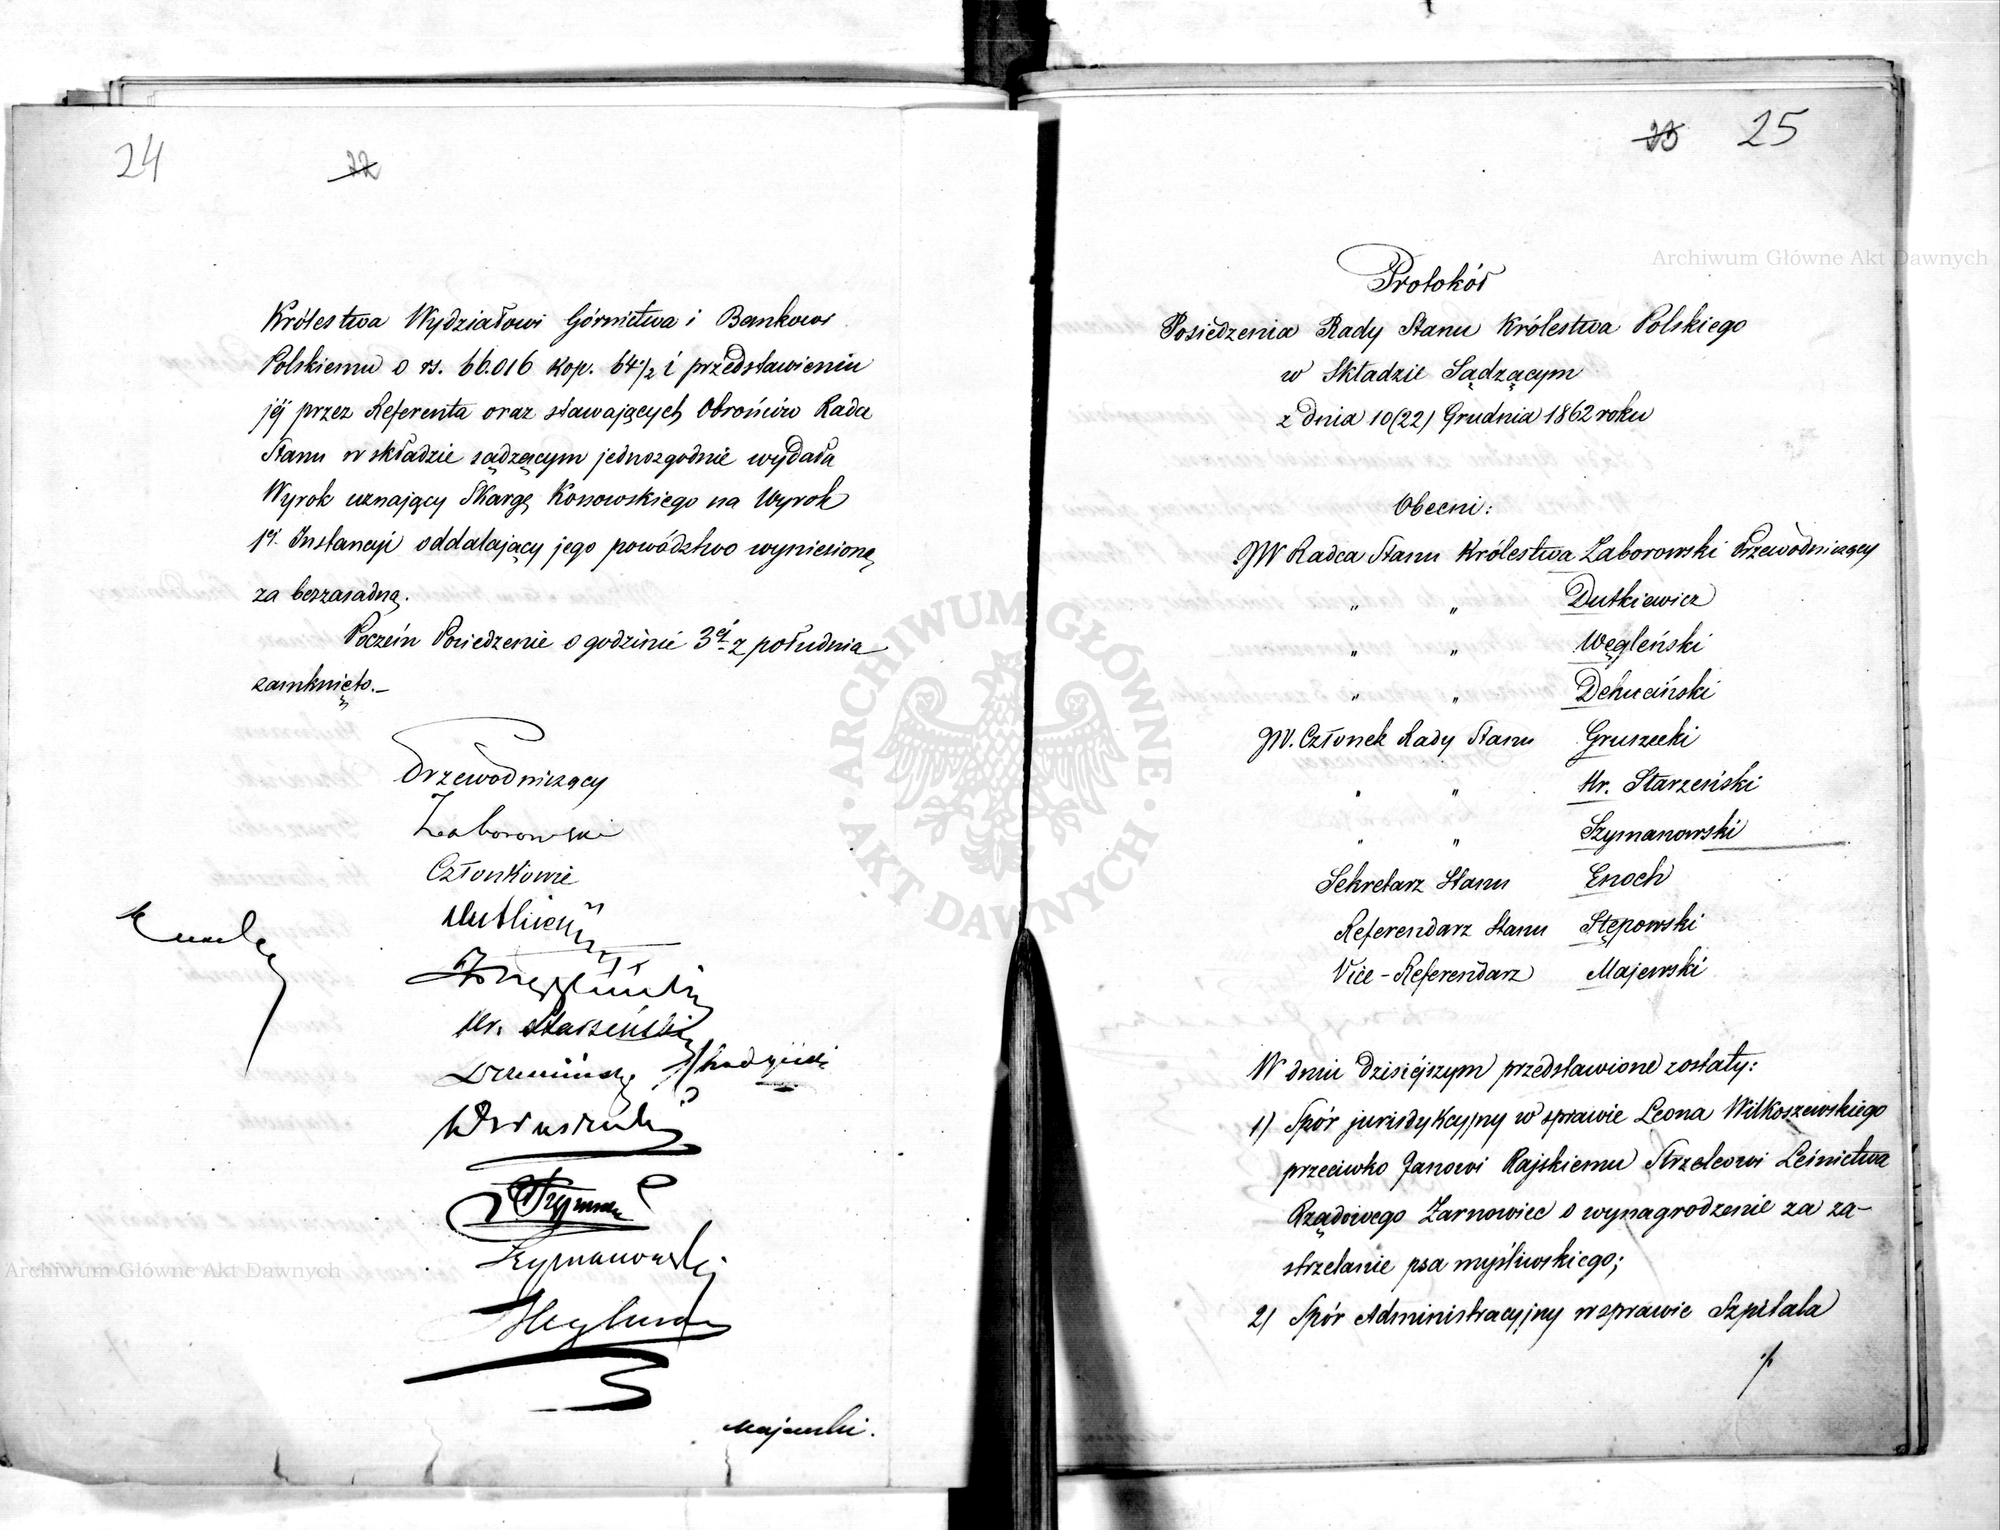 24
22
Królestwa Wydziałowi Górnictwa i Bankowi
Polskiemu o rs. 66.016 kop. 64½ i przedstawieniu
jéj przez Referenta oraz stawających Obrońców Rada
Stanu w składzie sądzącym jednozgodnie wydała
Wyrok uznający Skargę Konowskiego na Wyrok
1éj Instancyi oddalający jego powództwo wyniesioną
za bezzasadną.
Poczém Posiedzenie o godzinie 3éj z południa
zamknięto.—
Przewodniczący
Zaborowski
Członkowie
Dutkiewicz
Węgleński
Hr. Starzeński
Szymanowski
Majewski.
23 25
Protokół
Posiedzenia Rady Stanu Królestwa Polskiego
w Składzie Sądzącym
z dnia 10(22) Grudnia 1862 roku
Obecni:
JW Radca Stanu Królestwa Zaborowski Przewodniczący
" " Dutkiewicz
" " Węgleński
" " Dehuciński
JW. Członek Rady Stanu Gruszecki
" " Hr. Starzeński
" " Szymanowski
Sekretarz Stanu Enoch
Referendarz Stanu Stępowski
Vice-Referendarz Majewski
W dniu dzisiéjszym przedstawione zostały:
1) Spór jurisdykcyjny w sprawie Leona Wilkoszewskiego
przeciwko Janowi Rajskiemu Strzelcowi Leśnictwa
Rządowego Żarnowiec o wynagrodzenie za za-
strzelanie psa myśliwskiego;
2) Spór Administracyjny w sprawie Szpitala
./.
Archiwum Główne Akt Dawnych
Archiwum Główne Akt Dawnych
ARCHIWUM GŁÓWNE
AKT DAWNYCH